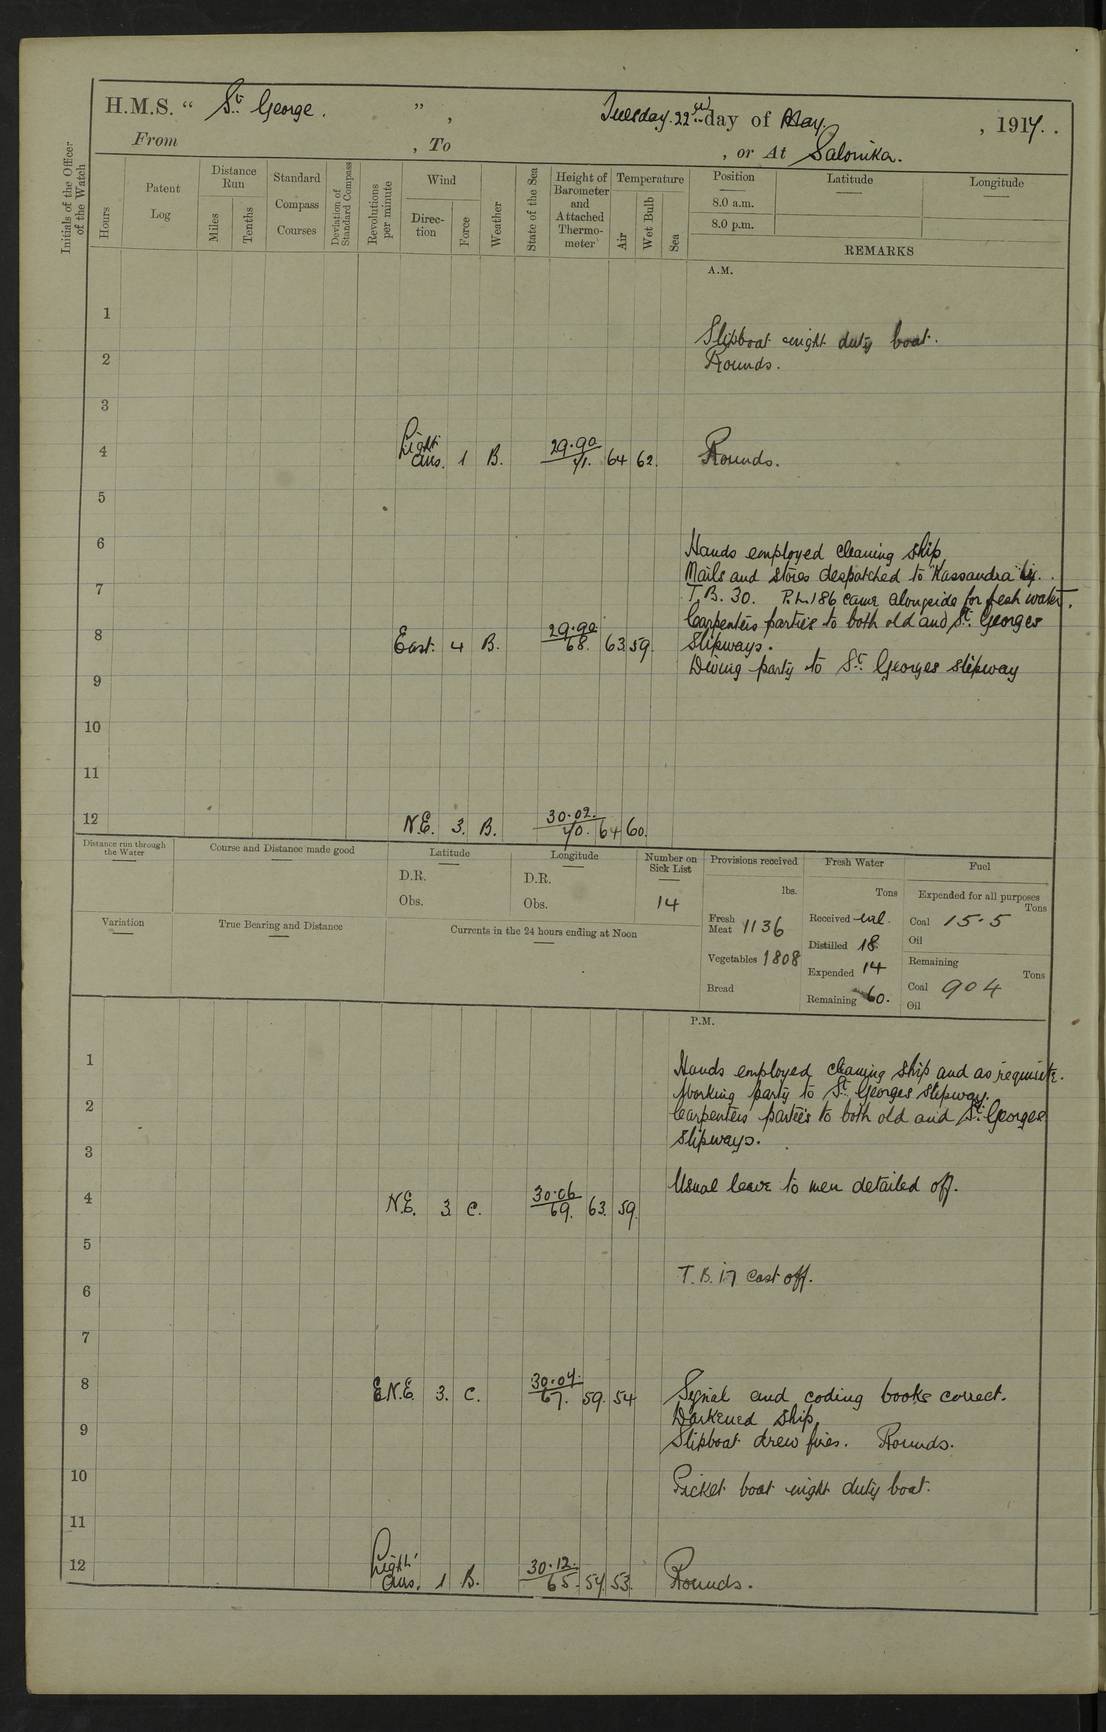 H.M.S. “ St George. ”, Tuesday. 22nd day of May, 1917.
From , To , or At Salonika.
Initials of the Officer of the Watch
Hours
Patent Log
Distance Run
Miles
Tenths
Standard Compass Courses
Deviation of Standard Compass
Revolutions per minute
Wind
Direction
Force
Weather
State of the Sea
Height of Barometer and Attached Thermometer
Temperature
Air
Wet Bulb
Sea
Position
8.0 a.m.
8.0 p.m.
Latitude
Longitude
REMARKS
A.M.
1
Slipboat night duty boat.
2
Rounds.
3
4 Light airs. 1 B. 29.90 71. 64 62. Rounds.
5
6
Hands employed cleaning ship
Mails and stores despatched to "Kassandra" by
7
T.B. 30. P.L.186 came alongside for fresh water.
Carpenters parties to both old and St. Georges
8 East. 4 B. 29.90 68. 63 59. slipways.
Diving party to St. Georges slipway
9
10
11
12 N.E. 3. B. 30.02. 70. 64 60.
Distance run through the Water
Course and Distance made good
Latitude
D.R.
Obs.
Longitude
D.R.
Obs.
Number on Sick List
14
Provisions received
lbs.
Fresh Meat 1136
Vegetables 1808
Bread
Fresh Water
Tons
Received nil.
Distilled 18
Expended 14
Remaining 60.
Fuel
Expended for all purposes
Tons
Coal 15.5
Oil
Remaining
Tons
Coal 904
Oil
Variation
True Bearing and Distance
Currents in the 24 hours ending at Noon
P.M.
1
Hands employed cleaning ship and as requisite.
Working party to St. Georges slipway.
2
Carpenters parties to both old and St. Georges
slipways.
3
Usual leave to men detailed off.
4 N.E. 3. C. 30.06 69. 63. 59.
5
T.B. 17 cast off.
6
7
8 E.N.E. 3. C. 30.07. 67. 59. 54 Signal and coding books correct.
Darkened ship.
9
Slipboat drew fires. Rounds.
10
Picket boat night duty boat.
11
12 Light airs. 1 B. 30.12. 65. 54 53. Rounds.